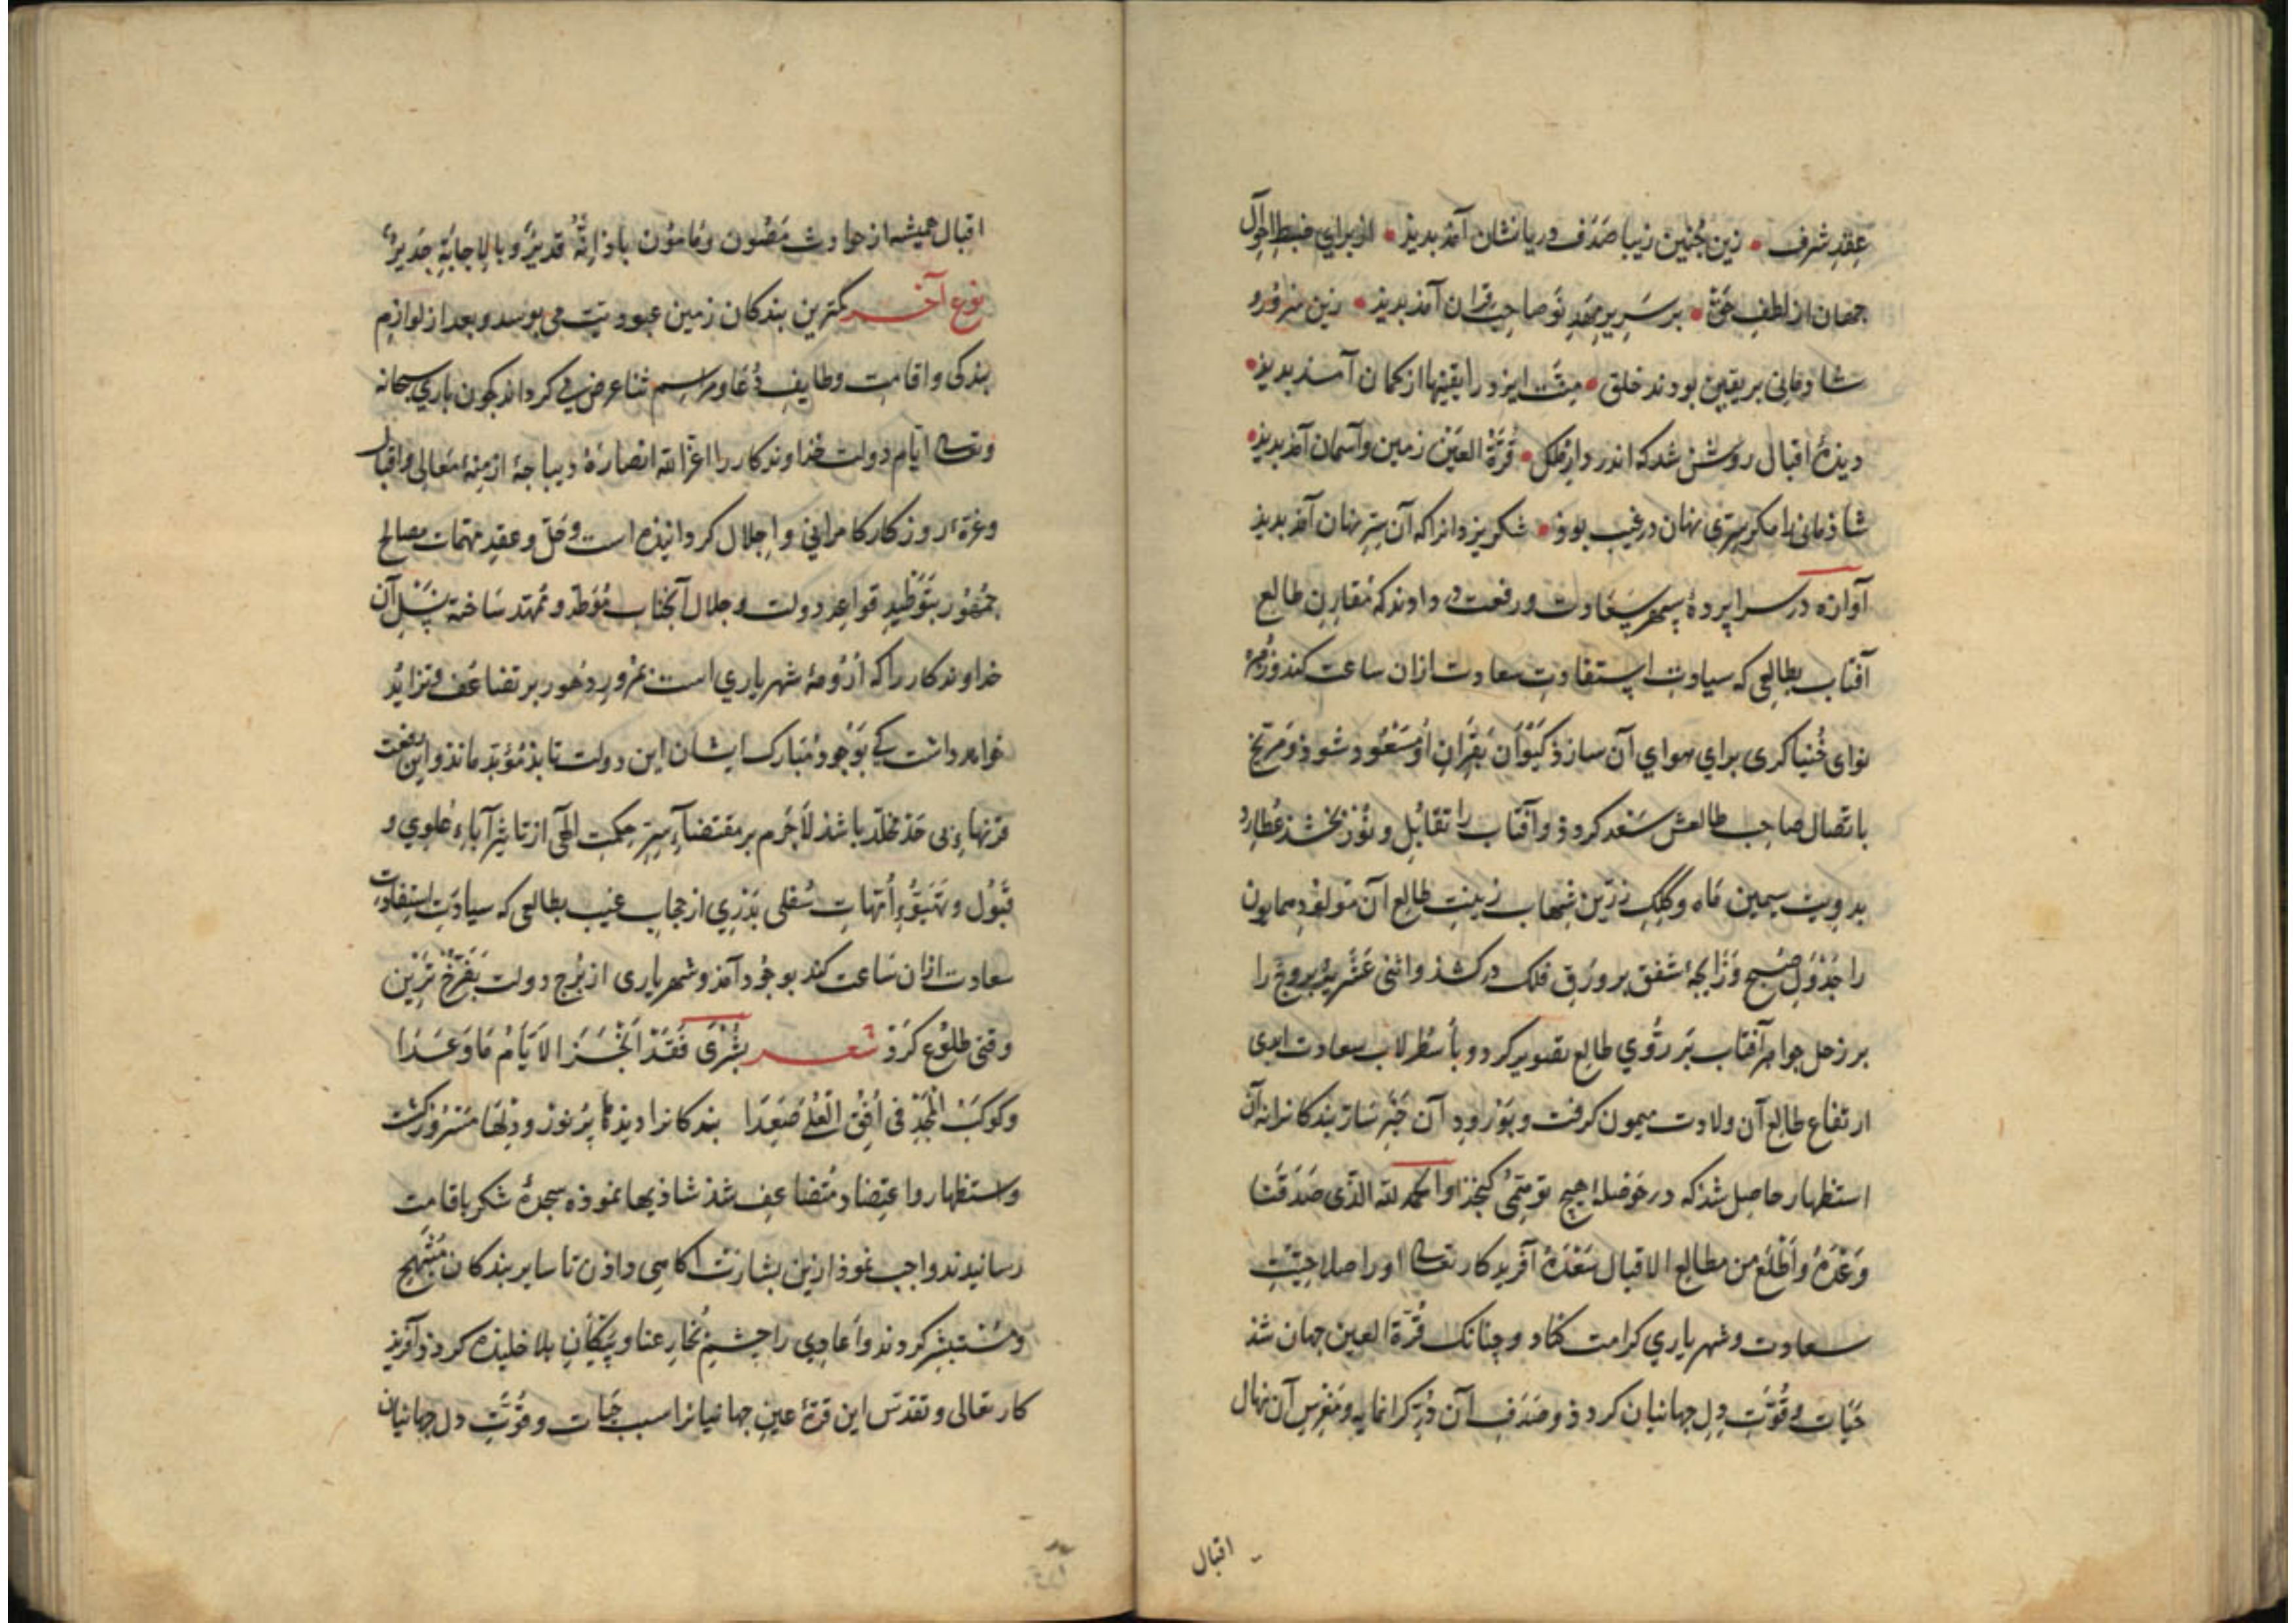 عِقدِ شرف • زین چُنین زیبا صَدَف دریا نشان آمذ بدیذ • از برای ضبطِ احوالِ
جهان از لطفِ حقّ • بر سَریرِ مهدِ نو صاحب قران آمذ بدیذ • زین سزد و
شادمانی بر یقین بودند خلق • ایزد را یقینها از کمان آمد بدیذ •
دیذهٔ اقبال روشن شد که اندر دار فلک • قُرّة العَیْن زمین و آسمان آمذ بدیذ •
شاذمانی را مکر سِرّی نهان در غیب بوذ • شکر یزدانرا که آن سِرِّ نهان آمذ بدیذ
آوازه در سراپردهٔ سپهرِ سَعَادت و رفعت در دادند که مُقارِنِ طالع
آفتاب بطالعی که سیادت استفادتِ سعادت ازان ساعت کند و زُهره
نوای خُنیاکری برای هوای آن سازذ کَیْوان بقِرانِ او مَسْعُود شوذ و مریّخ
باتّصال صاحب طالعش سَعْد کردذ و آفتاب را تقابُل و نُور بخشد عُطارد
بدویتِ سیمین ماه و کِلکِ زرّین شِهاب زینتِ طالع آن مَولُودِ همایون
را جَدْوَلِ صُبح و زایجهٔ شفق بر ورقِ فلک درکشذ و اثنی عَشَریهٔ بروج را
بر زحل جواهرِ آفتاب بَر رُوی طالع تصویر کرد و بأُسطُرلابِ سعادت ابدی
ارتفاع طالع آن ولادت میمون کرفت و بوُرُودِ آن خَبَرِ سَارّ بندکانرا نه آن
استظهار حاصل شذ که در حَوْصلهٔ هیچ توهّمی کنجذ و الحمد لله الذی صَدَقَنا
وَعْدَهُ و اَطْلَعَ من مطالع الاقبال سَعْدَهُ آفریدکار تعالی او را صلاحیّتِ
سعادت و شهریاری کرامت کناد و چنانک قُرّة العین جهان شذ
حَیات و قُوّتِ دِلِ جهانیان کردذ و صَدَفِ آن دُرِّ کرانمایه و مَغرِسِ آن نهال
اقبال
اقبال همیشه از حوادث مَصُون و مَامُون باذ اِنّهُ قدیرٌ و بالاِجابَةِ جَدیرٌ
نوع آخر کمترین بندکان زمین عبودیّت می بوسد و بعد از لوازم
بندکی و اقامتِ وظایفِ دُعا و مراسم ثنا عرض می کرداند که چون باری سبحانه
وتعالی ایّام دولت خذاوندکار را اعزّ الله انصارهُ دیباجهٔ ازمنهٔ معالی و اقبال
و غرّهٔ روزکار کامرانی و اِجلال کردانیذه است و حَلّ و عقدِ مهمّات مصالح
جُمهُور بتَوطیدِ قواعِدِ دولت و جلال آنجناب مُوَطّد و مُمَهّد ساخته نسلِ آن
خداوندکار را که اَرُومهٔ شهریاری است بمُرورِ دُهُور بر تضاعُف و تزایُد
خواهد داشت که بوُجُودِ مُبارک ایشان این دولت تا ابذ مُؤبّد ماند و این نعمت
قرنهاءِ بی حَد مخلّد باشذ لاَجَرَم بر مقتضاءِ سِرِّ حکمتِ الهی از تاثیرِ آباءِ عُلوِی و
قَبُول و تهَیّؤِ اُمّهاتِ سُفلی بَدْری از حجابِ غیب بطالعی که سیادت استفادتِ
سعادت ازان سَاعت کند بوجُود آمذ و شهریاری از بُرجِ دولت بفَرّخ‌ترین
وقتی طلُوع کرد شعر بُشْرَی فَقَدْ اَنْجَزَ الاَیّامُ مَا وَعَدَا
وَ کَوکَبُ المَجْدِ فی اُفقِ العُلی صَعَدَا بندکانرا دیذها پُرنُور و دلها مَسْرُور کشت
و استظهار و اعتِضاد مُتضاعِف شُذ شاذیها نموذه سجدهٔ شکر باقامت
رسانیدند و واجب نموذ ازین بشارت اکاهی داذن تا سایر بندکان مُبتَهِج
و مُستبشِر کردند و اَعادِی را چشم بخارِ عنا و پَیکانِ بلا خلیذه کردذ و آفریذ
کار تعالی و تقدّس این قرّهٔ عینِ جهانیانرا سببِ حَیات و قُوّتِ دلِ جهانیان